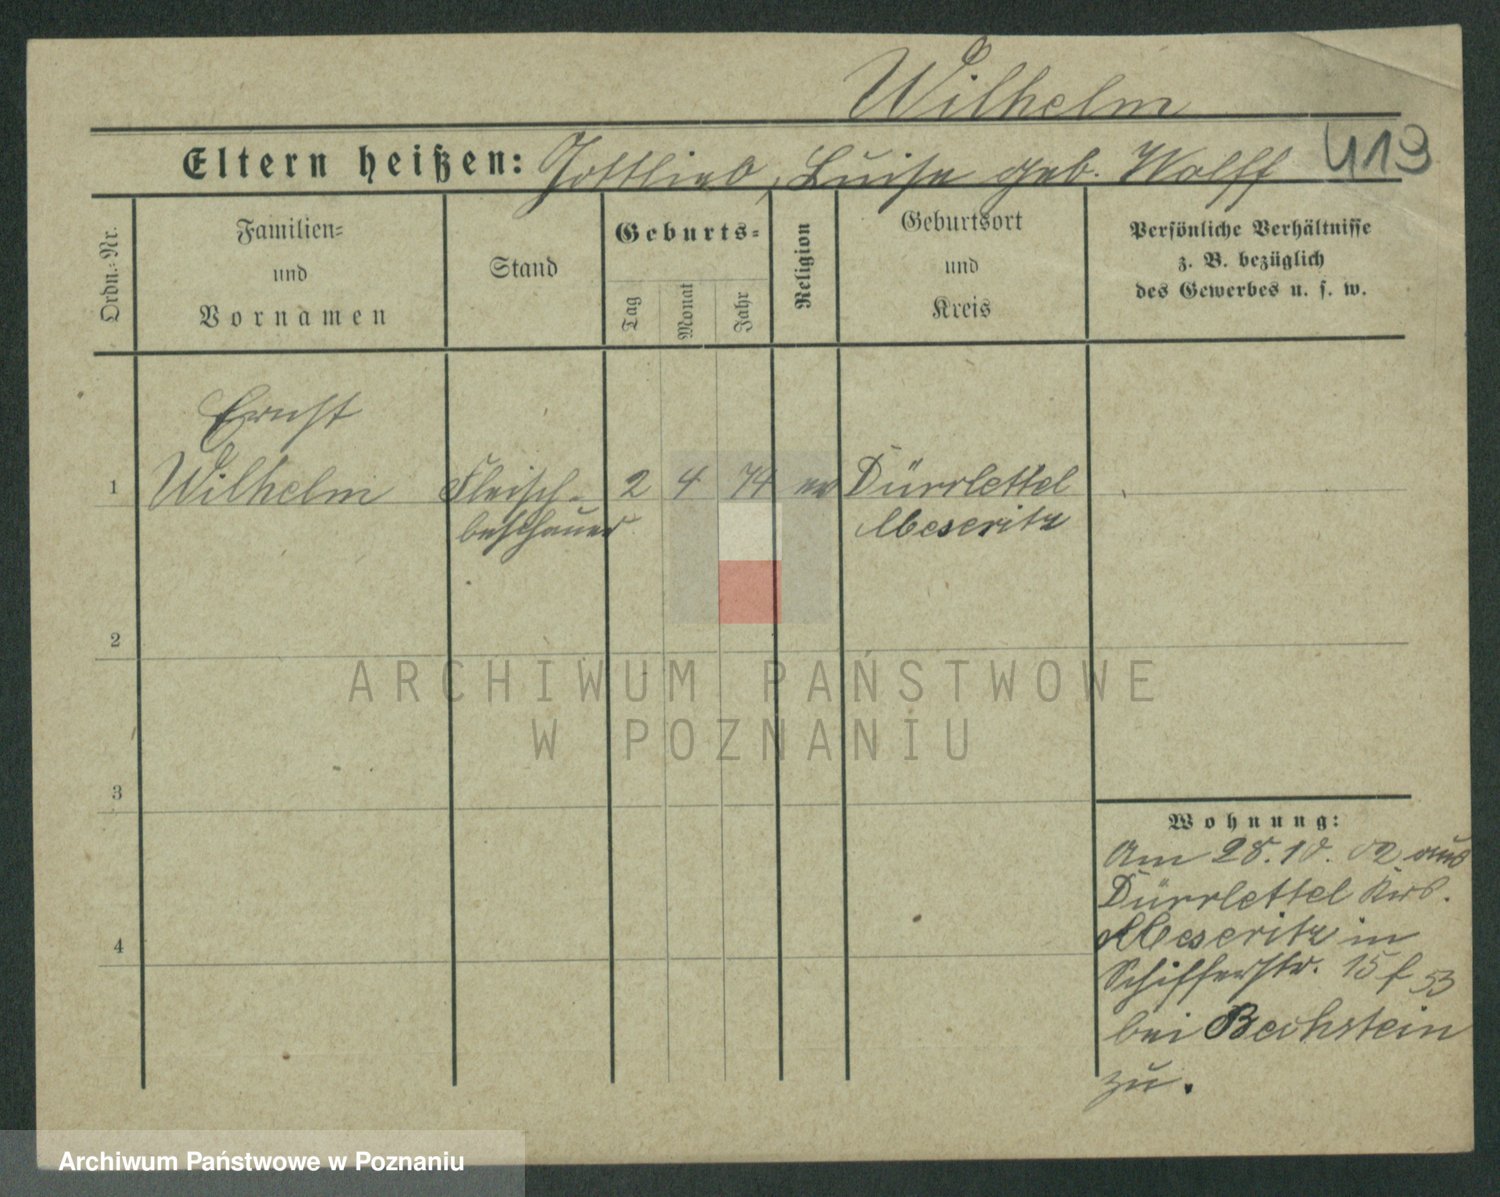 Wilhelm
Eltern heißen: Gottlieb, Luise geb. Wolff
419
Ordn.-Nr.
Familien-
und
Vornamen
Stand
Geburts-
Tag
Monat
Jahr
Religion
Geburtsort
und
Kreis
Persönliche Verhältnisse
z. B. bezüglich
des Gewerbes u. s. w.
Ernst
1 Wilhelm Fleisch- 2 4 74 ev Dürrlettel
beschauer Meseritz
2
ARCHIWUM PAŃSTWOWE
W POZNANIU
3
Wohnung:
Am 28.10.02 aus
Dürrlettel Krs.
4
Meseritz in
Schifferstr. 15 f 53
bei Bechstein
zu.
Archiwum Państwowe w Poznaniu